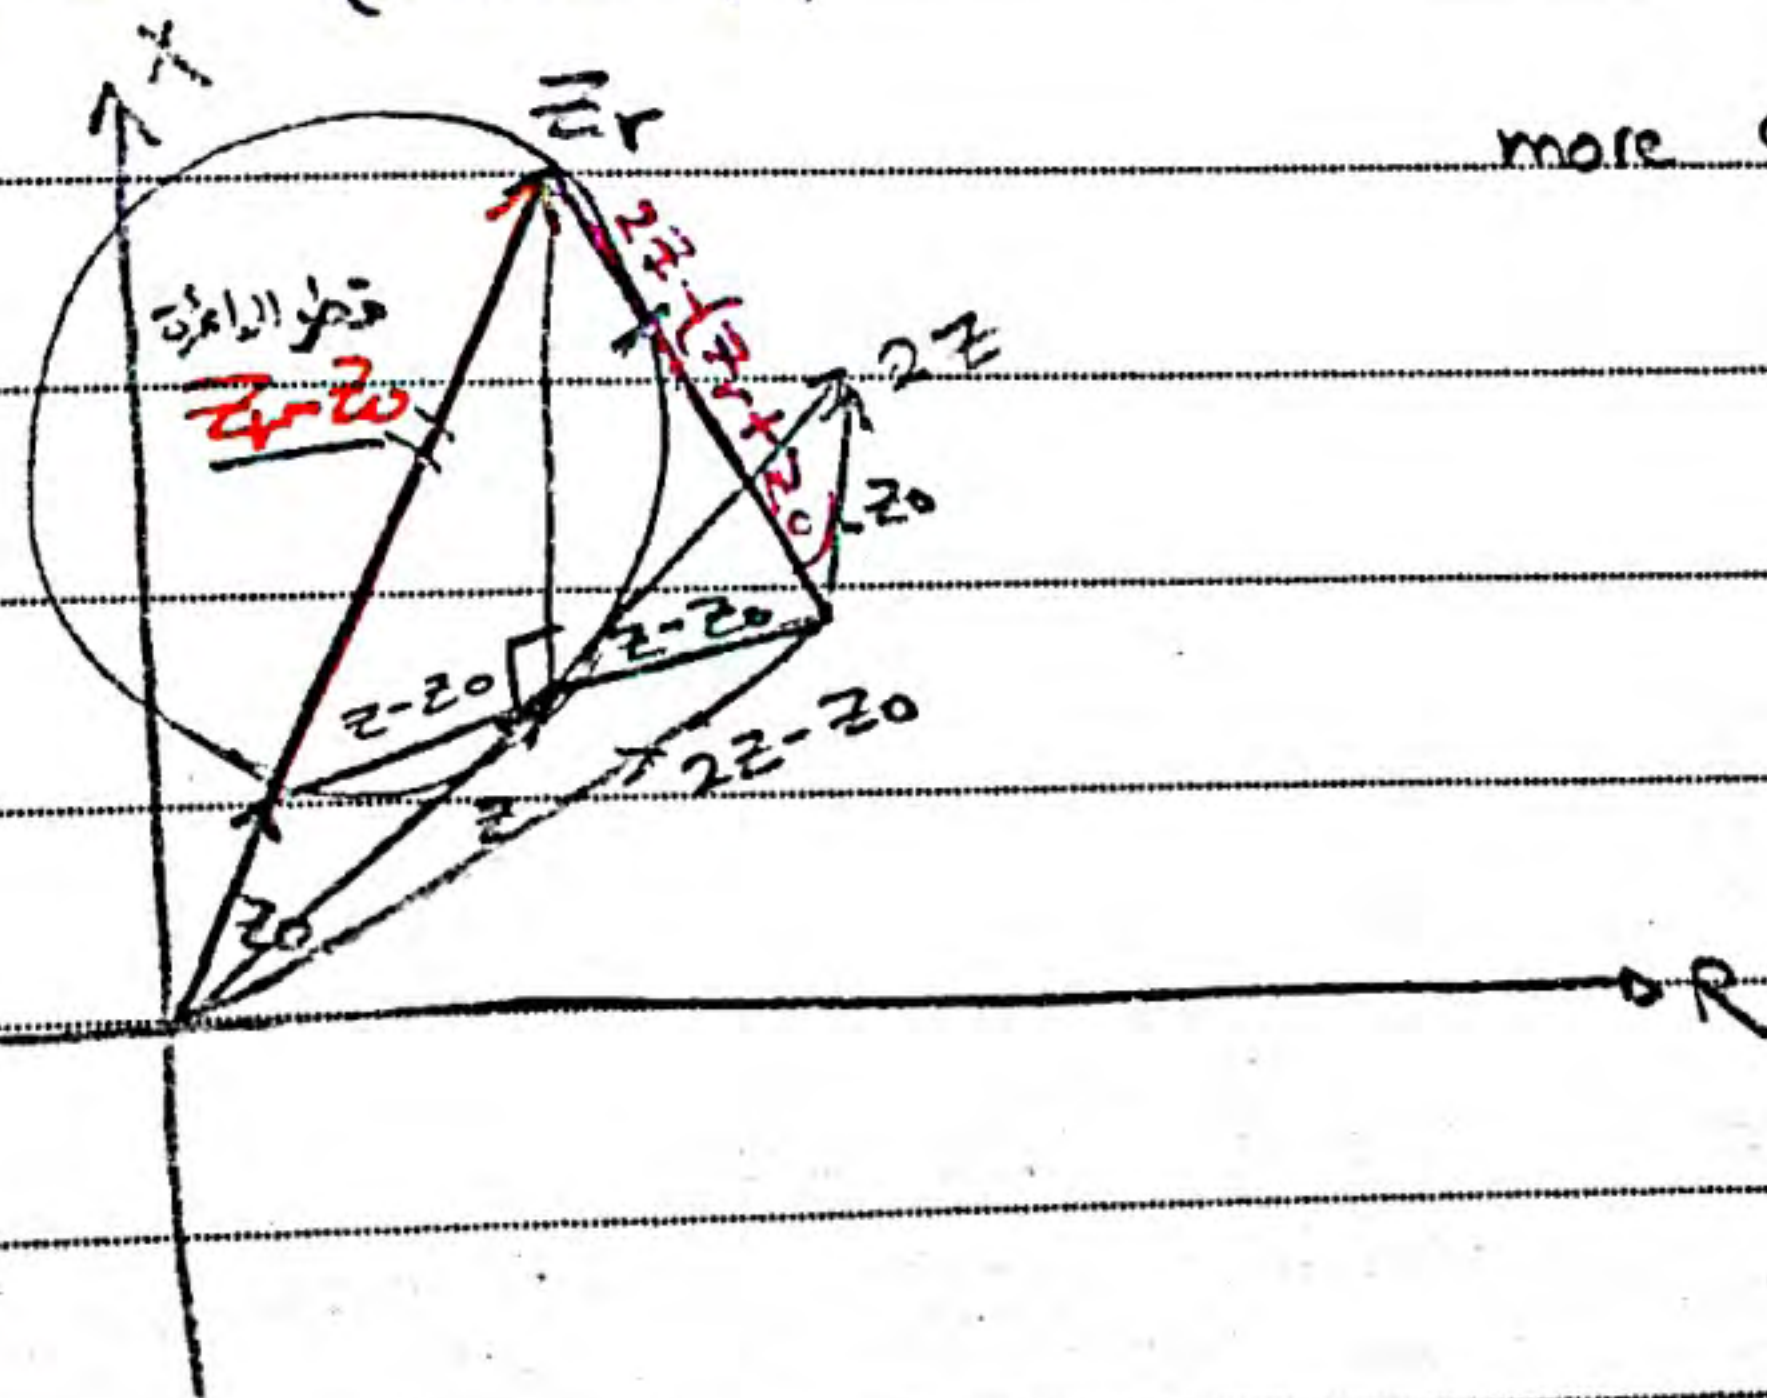 X
Zr
more
قطر الدائرة
Zr-Z0
2Z-(Zr+Z0)
2Z
-Z0
Z-Z0
Z-Z0
2Z-Z0
Z
Z0
R